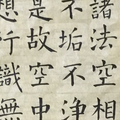 諸法空相
不垢不浄
是故空中
想行識無